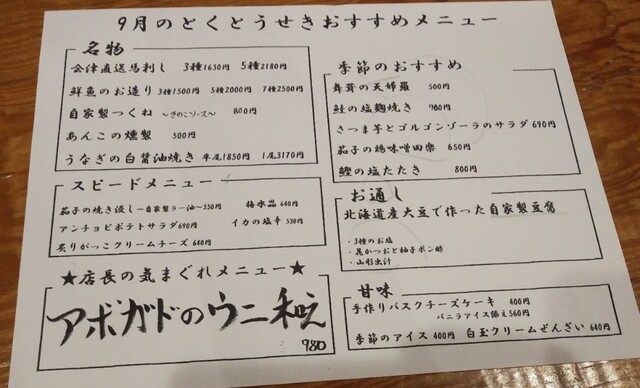 9月のとくとうせきおすすめメニュー
名物
会津直送馬刺し 3種1630円 5種2180円
鮮魚のお造り 3種1500円 5種2000円 7種2500円
自家製つくね ～きのこソース～ 800円
あんこの燻製 500円
うなぎの白醤油焼き 半尾1850円 1尾3170円
スピードメニュー
茄子の焼き浸し～自家製ラー油～550円 梅水晶 640円
アンチョビポテトサラダ690円 イカの塩辛 530円
炙りがっこクリームチーズ 640円
★店長の気まぐれメニュー★
アボガドのウニ和え
980
季節のおすすめ
舞茸の天婦羅 500円
鮭の塩麹焼き 900円
さつま芋とゴルゴンゾーラのサラダ690円
茄子の鶏味噌田楽 650円
鰹の塩たたき 800円
お通し
北海道産大豆で作った自家製豆腐
・3種のお塩
・花かつおと柚子ポン酢
・山形出汁
甘味
手作りバスクチーズケーキ 400円
バニラアイス添え560円
季節のアイス 400円 白玉クリームぜんざい 640円